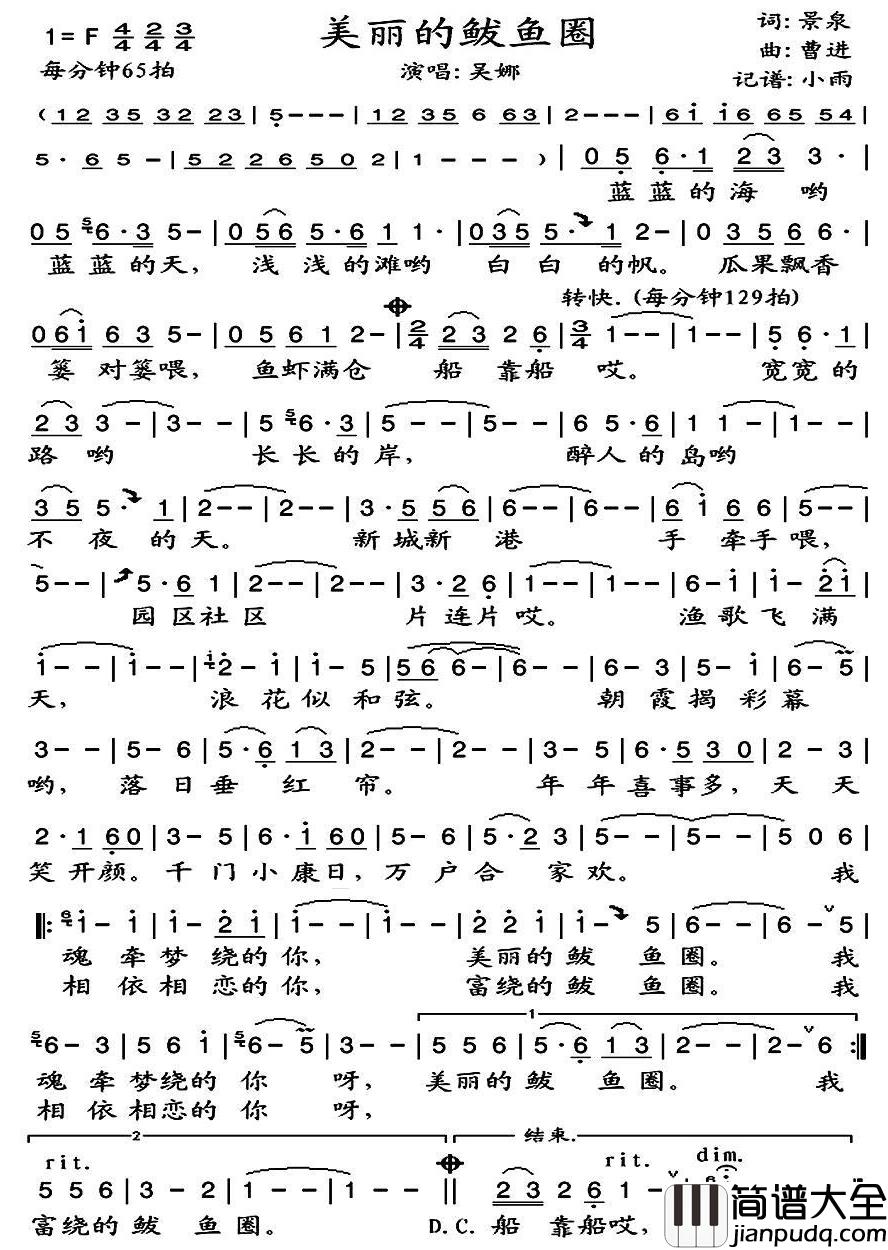 美丽的鲅鱼圈
1= F 4/4 2/4 3/4
每分钟65拍
演唱: 吴娜
词: 景泉
曲: 曹进
记谱: 小雨
( 12 35 32 23 | 5 - - - | 12 35 6 63 | 2 - - - | 6i i6 65 54 |
5 · 6 5 - | 52 26 50 2 | 1 - - - ) | 0 5 6 · 1 23 3 · |
蓝蓝的海 哟
0 5 6 · 3 5 - | 0 56 5 · 6 1 1 · | 0 35 5 · 1 2 - | 0 3 5 6 6 · |
蓝蓝的天, 浅浅的滩哟 白白的帆。 瓜果飘香
转快. (每分钟129拍)
0 6i 6 3 5 - | 0 5 6 1 2 - | 2/4 23 2 6 | 3/4 1 - - | 1 - - | 5 6 · 1 |
篓对篓喂, 鱼虾满仓 船靠船哎。 宽宽的
23 3 - | 3 - - | 5 6 · 3 | 5 - - | 5 - - | 6 5 · 6 | 1 1 - | 1 - - |
路哟 长长的岸, 醉人的岛哟
35 5 · 1 | 2 - - | 2 - - | 3 · 5 56 | 6 - - | 6 - - | 6 i 6 6 | 5 - - |
不夜的天。 新城新港 手牵手喂,
5 - - | 5 · 6 1 | 2 - - | 2 - - | 3 · 2 6 | 1 - - | 1 - - | 6 - i | i - 2i |
园区社区 片连片哎。 渔歌飞满
i - - | i - - | 2 - i | i - 5 | 56 6 - | 6 - - | 6 - 3 | 5 - i | 6 - 5 |
天, 浪花似和弦。 朝霞揭彩幕
3 - - | 5 - 6 | 5 · 6 1 3 | 2 - - | 2 - - | 3 - 5 | 6 · 5 30 | 2 - 3 |
哟, 落日垂红帘。 年年喜事多, 天天
2 · 1 60 | 3 - 5 | 6 · i 60 | 5 - 6 | 5 · 2 3 | 5 - - | 5 - - | 5 0 6 |
笑开颜。千门小康日, 万户合家欢。 我
‖: i - i | i - 2i | i - - | i - - | 2 2 2 i | i - 5 | 6 - - | 6 - 5 |
魂牵梦绕的你, 美丽的鲅鱼圈。 我
相依相恋的你, 富绕的鲅鱼圈。 我
1
6 - 3 | 5 6 i | 6 - 5 | 3 - - | 5 5 6 | 5 · 6 1 3 | 2 - - | 2 - 6 :‖
魂牵梦绕的你呀, 美丽的鲅鱼圈。 我
相依相恋的你呀,
2 结束.
rit. rit. dim.
5 5 6 | 3 - 2 | 1 - - | 1 - - ‖ 23 2 6 | 1 - -
富绕的鲅鱼圈。 D.C. 船靠船哎,
简谱大全
jianpudq.com